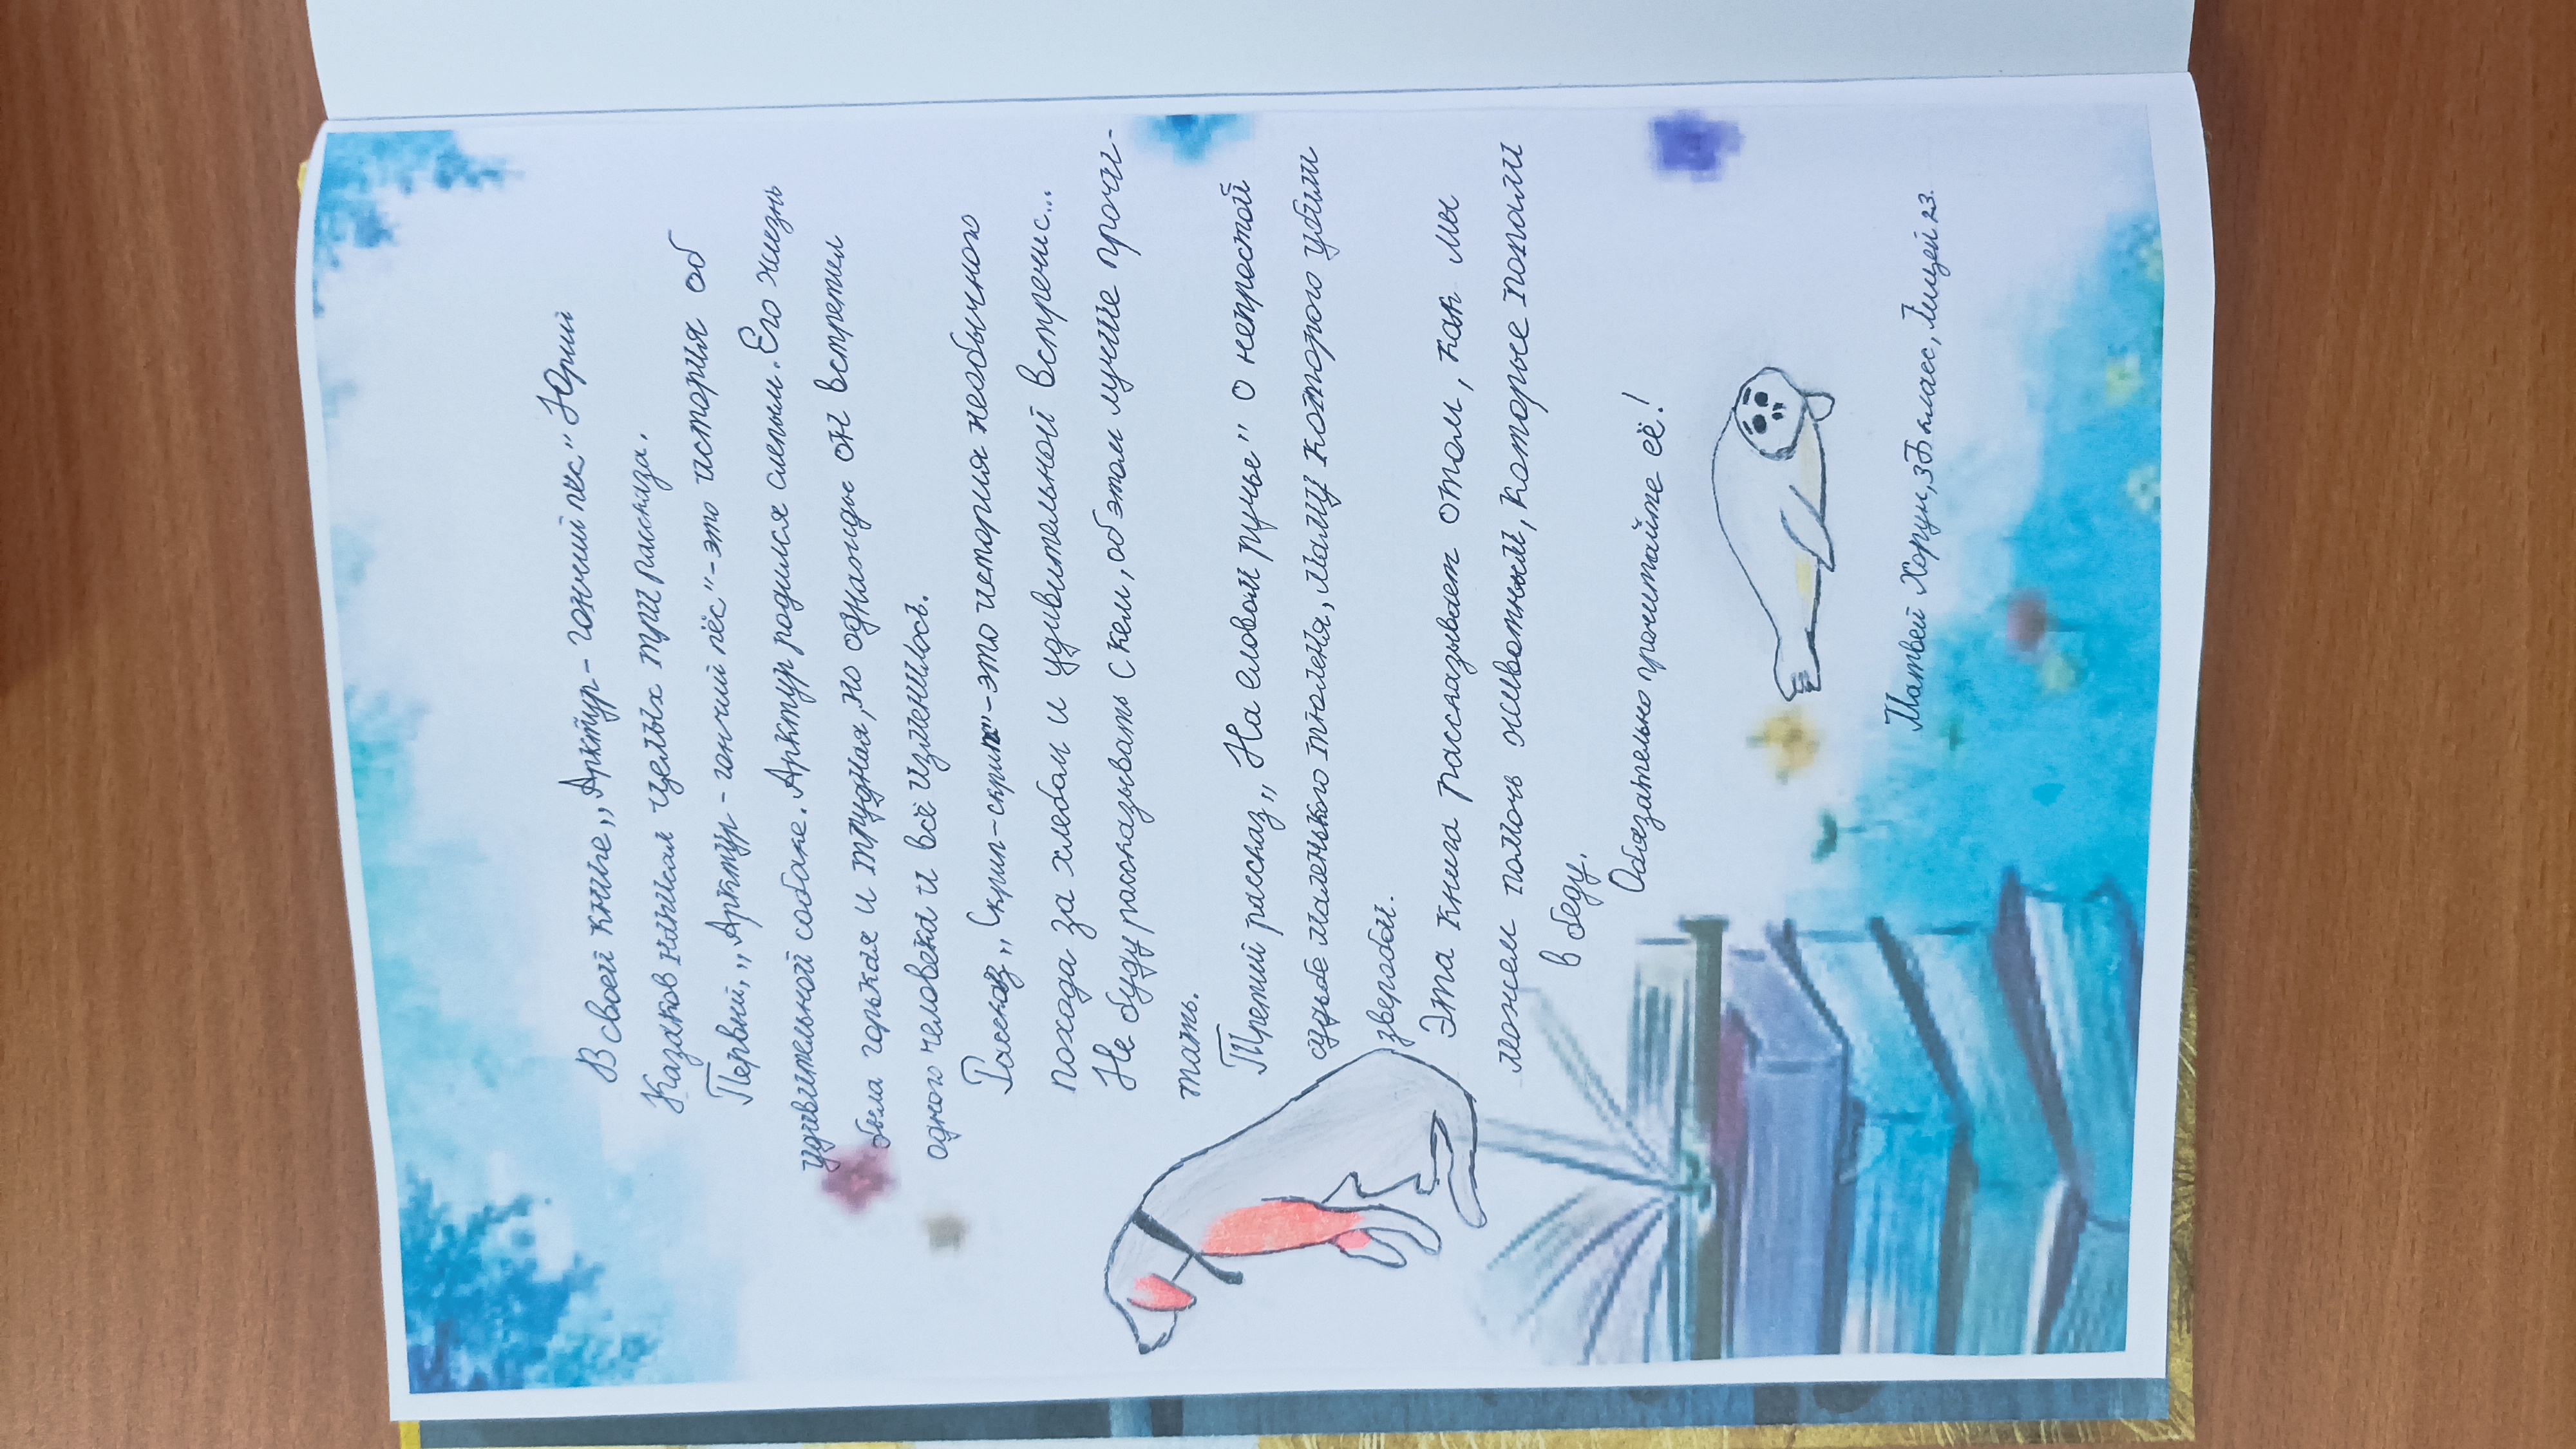 В своей книге „Арктур - гончий пёс" Юрий
Казаков написал целых три рассказа.
Первый, „Арктур - гончий пёс" - это история об
удивительной собаке. Арктур родился слепым. Его жизнь
была горькая и трудная, но однажды он встретил
одного человека и всё изменилось.
Рассказ „Скрип-скрип" - это история необычного
похода за хлебом и удивительной встрече...
Не буду рассказывать с кем, об этом лучше прочи-
тать.
Третий рассказ „На еловом ручье" о непростой
судьбе маленького тюленя, маму которого убили
зверобои.
Эта книга рассказывает о том, как мы
можем помочь животным, которые попали
в беду.
Обязательно прочитайте её!
Матвей Хорун, 3В класс, Лицей 23.